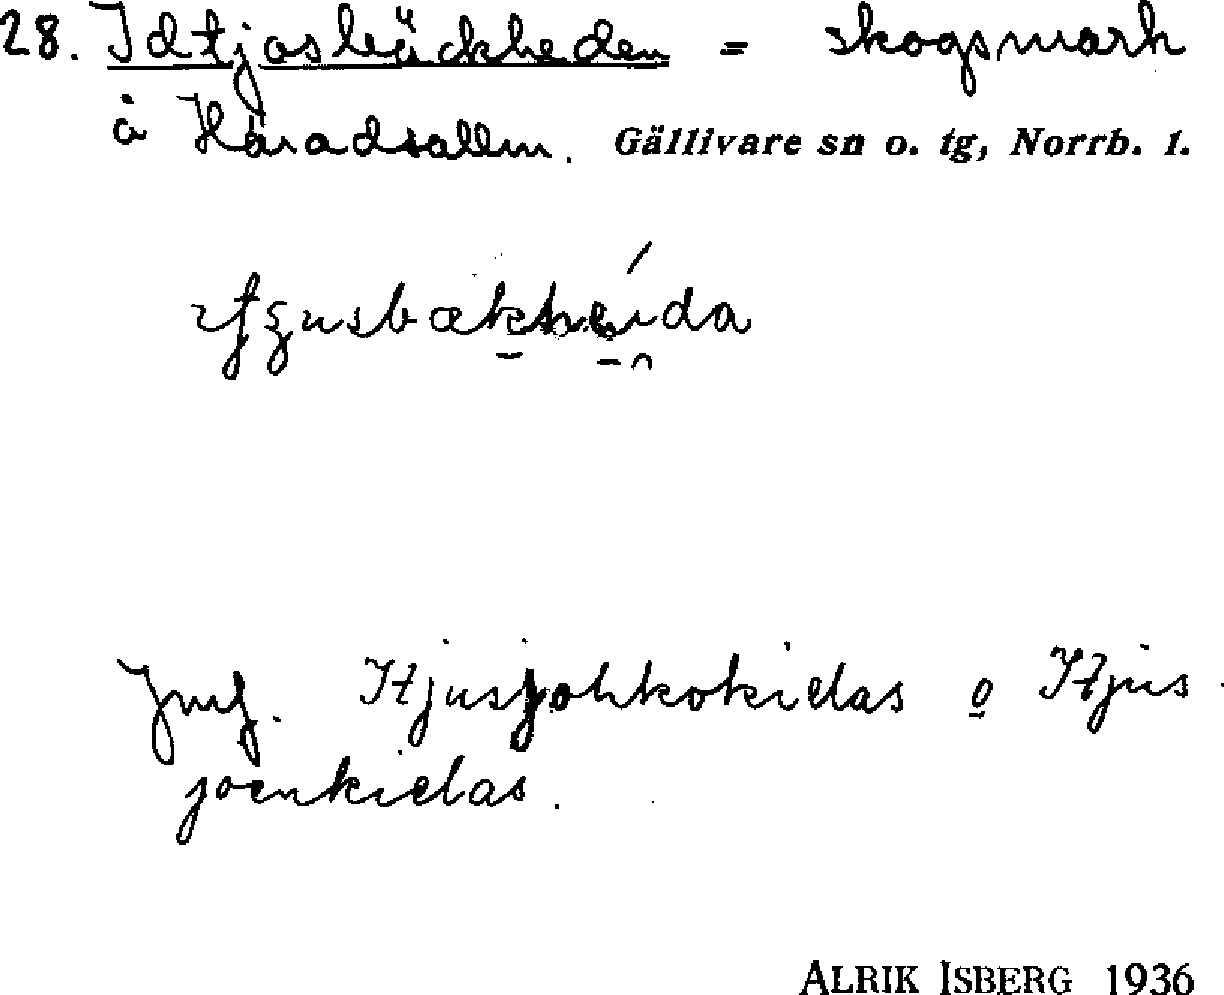 28. Idtjosbäckheden = skogsmark
å Häradsallm. Gällivare sn o. tg, Norrb. l.
Jmf. Itjusjohkokielas o Itjus-
joenkielas.
ALRIK ISBERG 1936